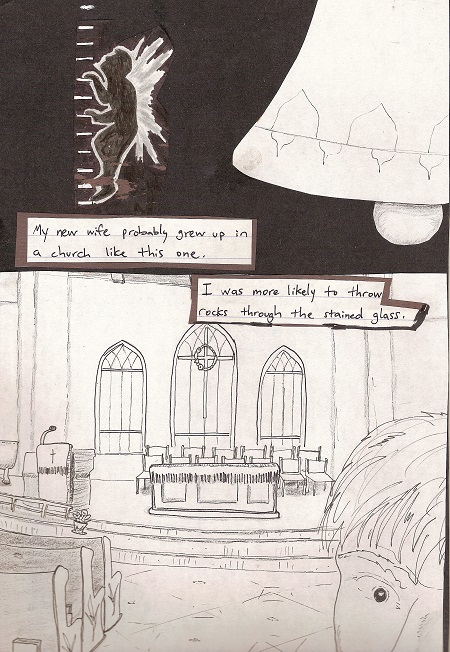 My new wife probably grew up in
a church like this one.
I was more likely to throw
rocks through the stained glass.